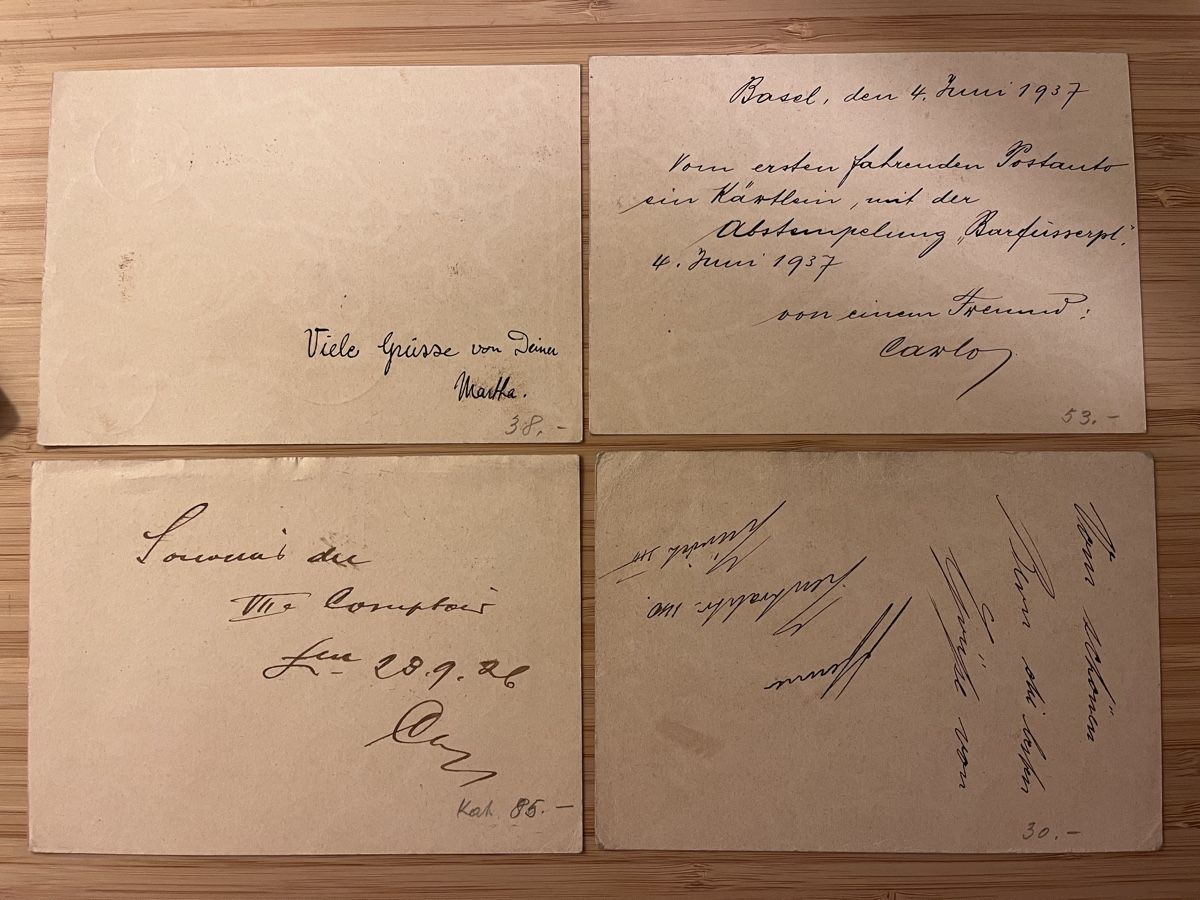 Viele Grüsse von Deiner
Martha.
38.-
Basel, den 4. Juni 1937
Vom ersten fahrenden Postauto
ein Kärtlein, mit der
Abstempelung „Barfüsserpl."
4. Juni 1937
von einem Freund:
Carlo
53.-
Souvenir du
VIIe Comptoir
28.9.26
Kat. 85.-
Vom schönen
Bern die besten
Grüße von
Zentralstr. 140.
30.-